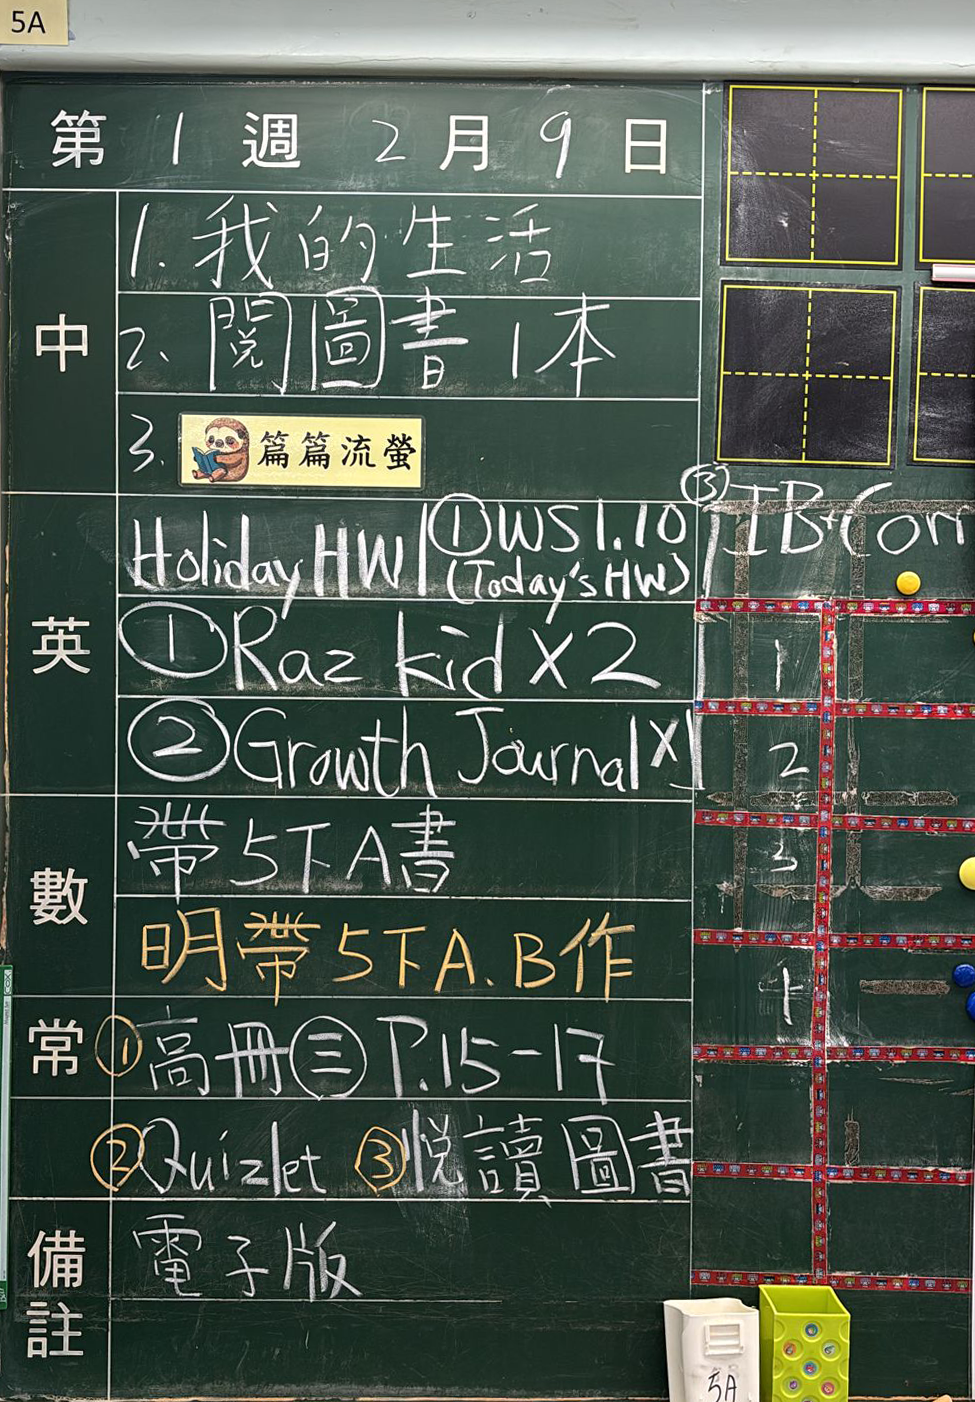 5A
第 1 週 2 月 9 日
中
1. 我的生活
2、閱圖書1本
3. 篇篇流螢
英
Holiday HW ①WS1.10 ③IB+Corr
(Today's HW)
①Raz kid X 2
②Growth Journal X1
數
帶5下A書
明帶5下A.B作
常
①高冊㊂ P.15-17
②Quizlet ③悅讀圖書
備註
電子版
1
2
3
4
5A